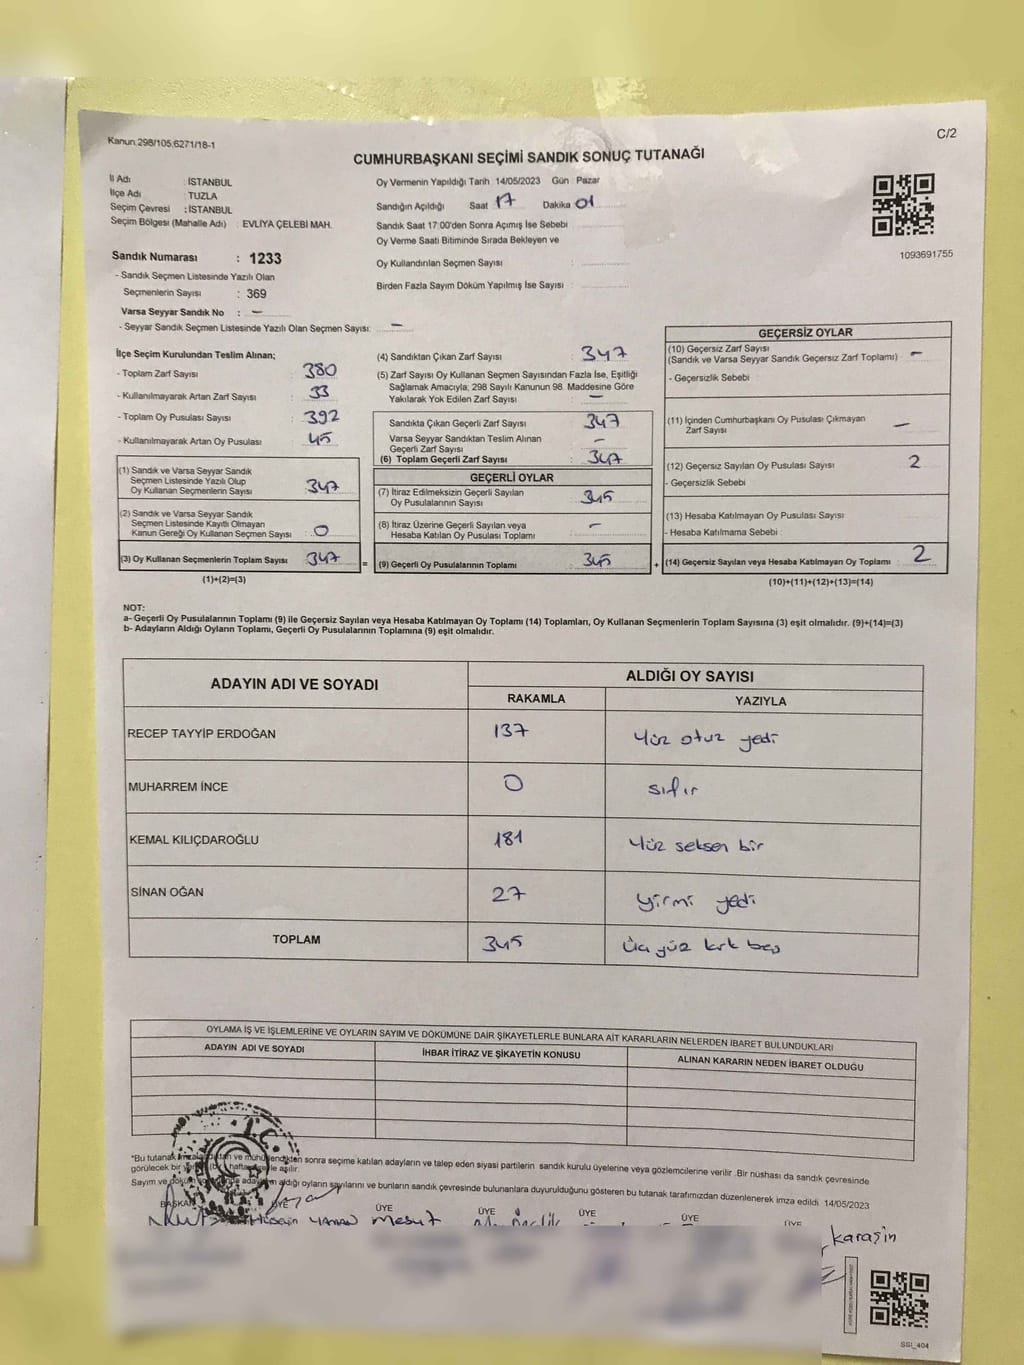 Kanun:298/105;6271/18-1
C/2
CUMHURBAŞKANI SEÇİMİ SANDIK SONUÇ TUTANAĞI
İl Adı : İSTANBUL
İlçe Adı : TUZLA
Seçim Çevresi : İSTANBUL
Seçim Bölgesi (Mahalle Adı) EVLİYA ÇELEBİ MAH.
Oy Vermenin Yapıldığı Tarih 14/05/2023 Gün Pazar
Sandığın Açıldığı Saat 17 Dakika 01
Sandık Saat 17:00'den Sonra Açımış İse Sebebi
Oy Verme Saati Bitiminde Sırada Bekleyen ve
Oy Kullandırılan Seçmen Sayısı :
Birden Fazla Sayım Döküm Yapılmış İse Sayısı :
1093691755
Sandık Numarası : 1233
- Sandık Seçmen Listesinde Yazılı Olan
Seçmenlerin Sayısı : 369
Varsa Seyyar Sandık No : -
- Seyyar Sandık Seçmen Listesinde Yazılı Olan Seçmen Sayısı: -
İlçe Seçim Kurulundan Teslim Alınan;
- Toplam Zarf Sayısı : 380
- Kullanılmayarak Artan Zarf Sayısı : 33
- Toplam Oy Pusulası Sayısı : 392
- Kullanılmayarak Artan Oy Pusulası : 45
(1) Sandık ve Varsa Seyyar Sandık
Seçmen Listesinde Yazılı Olup
Oy Kullanan Seçmenlerin Sayısı : 347
(2) Sandık ve Varsa Seyyar Sandık
Seçmen Listesinde Kayıtlı Olmayan
Kanun Gereği Oy Kullanan Seçmen Sayısı : 0
(3) Oy Kullanan Seçmenlerin Toplam Sayısı : 347
(1)+(2)=(3)
(4) Sandıktan Çıkan Zarf Sayısı : 347
(5) Zarf Sayısı Oy Kullanan Seçmen Sayısından Fazla İse, Eşitliği
Sağlamak Amacıyla, 298 Sayılı Kanunun 98. Maddesine Göre
Yakılarak Yok Edilen Zarf Sayısı : -
Sandıkta Çıkan Geçerli Zarf Sayısı : 347
Varsa Seyyar Sandıktan Teslim Alınan
Geçerli Zarf Sayısı : -
(6) Toplam Geçerli Zarf Sayısı : 347
GEÇERLİ OYLAR
(7) İtiraz Edilmeksizin Geçerli Sayılan
Oy Pusulalarının Sayısı : 345
(8) İtiraz Üzerine Geçerli Sayılan veya
Hesaba Katılan Oy Pusulası Toplamı : -
= (9) Geçerli Oy Pusulalarının Toplamı : 345
GEÇERSİZ OYLAR
(10) Geçersiz Zarf Sayısı
(Sandık ve Varsa Seyyar Sandık Geçersiz Zarf Toplamı) : -
- Geçersizlik Sebebi
(11) İçinden Cumhurbaşkanı Oy Pusulası Çıkmayan
Zarf Sayısı : -
(12) Geçersiz Sayılan Oy Pusulası Sayısı : 2
- Geçersizlik Sebebi
(13) Hesaba Katılmayan Oy Pusulası Sayısı :
- Hesaba Katılmama Sebebi :
+ (14) Geçersiz Sayılan veya Hesaba Katılmayan Oy Toplamı : 2
(10)+(11)+(12)+(13)=(14)
NOT:
a- Geçerli Oy Pusulalarının Toplamı (9) ile Geçersiz Sayılan veya Hesaba Katılmayan Oy Toplamı (14) Toplamları, Oy Kullanan Seçmenlerin Toplam Sayısına (3) eşit olmalıdır. (9)+(14)=(3)
b- Adayların Aldığı Oyların Toplamı, Geçerli Oy Pusulalarının Toplamına (9) eşit olmalıdır.
ADAYIN ADI VE SOYADI ALDIĞI OY SAYISI
RAKAMLA YAZIYLA
RECEP TAYYİP ERDOĞAN 137 Yüz otuz yedi
MUHARREM İNCE 0 sıfır
KEMAL KILIÇDAROĞLU 181 Yüz seksen bir
SİNAN OĞAN 27 yirmi yedi
TOPLAM 345 Üç yüz kırk beş
OYLAMA İŞ VE İŞLEMLERİNE VE OYLARIN SAYIM VE DÖKÜMÜNE DAİR ŞİKAYETLERLE BUNLARA AİT KARARLARIN NELERDEN İBARET BULUNDUKLARI
ADAYIN ADI VE SOYADI İHBAR İTİRAZ VE ŞİKAYETİN KONUSU ALINAN KARARIN NEDEN İBARET OLDUĞU
T.C.
*Bu tutanak ve mühürlendikten sonra seçime katılan adayların ve talep eden siyasi partilerin sandık kurulu üyelerine veya gözlemcilerine verilir .Bir nüshası da sandık çevresinde
görülecek bir (bir) hafta ile asılır.
Sayım ve döküm aldığı oyların sayılarını ve bunların sandık çevresinde bulunanlara duyurulduğunu gösteren bu tutanak tarafımızdan düzenlenerek imza edildi. 14/05/2023
BAŞKAN ÜYE ÜYE ÜYE ÜYE ÜYE ÜYE
Hüseyin YAMAN Mesut karaşin
SSI_404